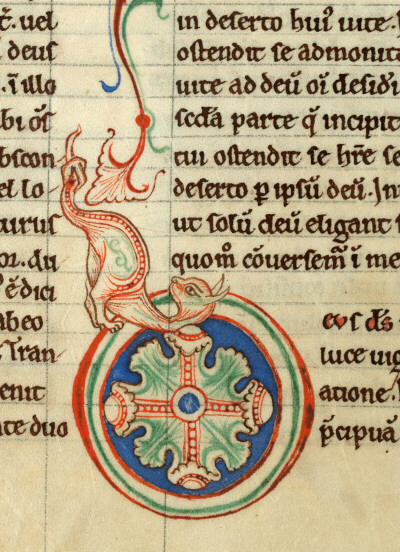 r̃. uel
deus
. ĩ illo
bi oı̃s
bscon
el lo
aurus
. du
ẽ dici
abeo
Tran
enit
te duo
in deserto huı᷒ uite.
ostendit se admonita
uite ad deũ oı̃ desid
scd̃a parte q̃ incipit
cui ostendit se hr̃e se
deserto p̱ ipsũ deũ. In
ut solũ deũ eligant s
quom̃ cõuersem̃ ĩ me
eus ds̃
luce uig
atione.
p̃cipuã